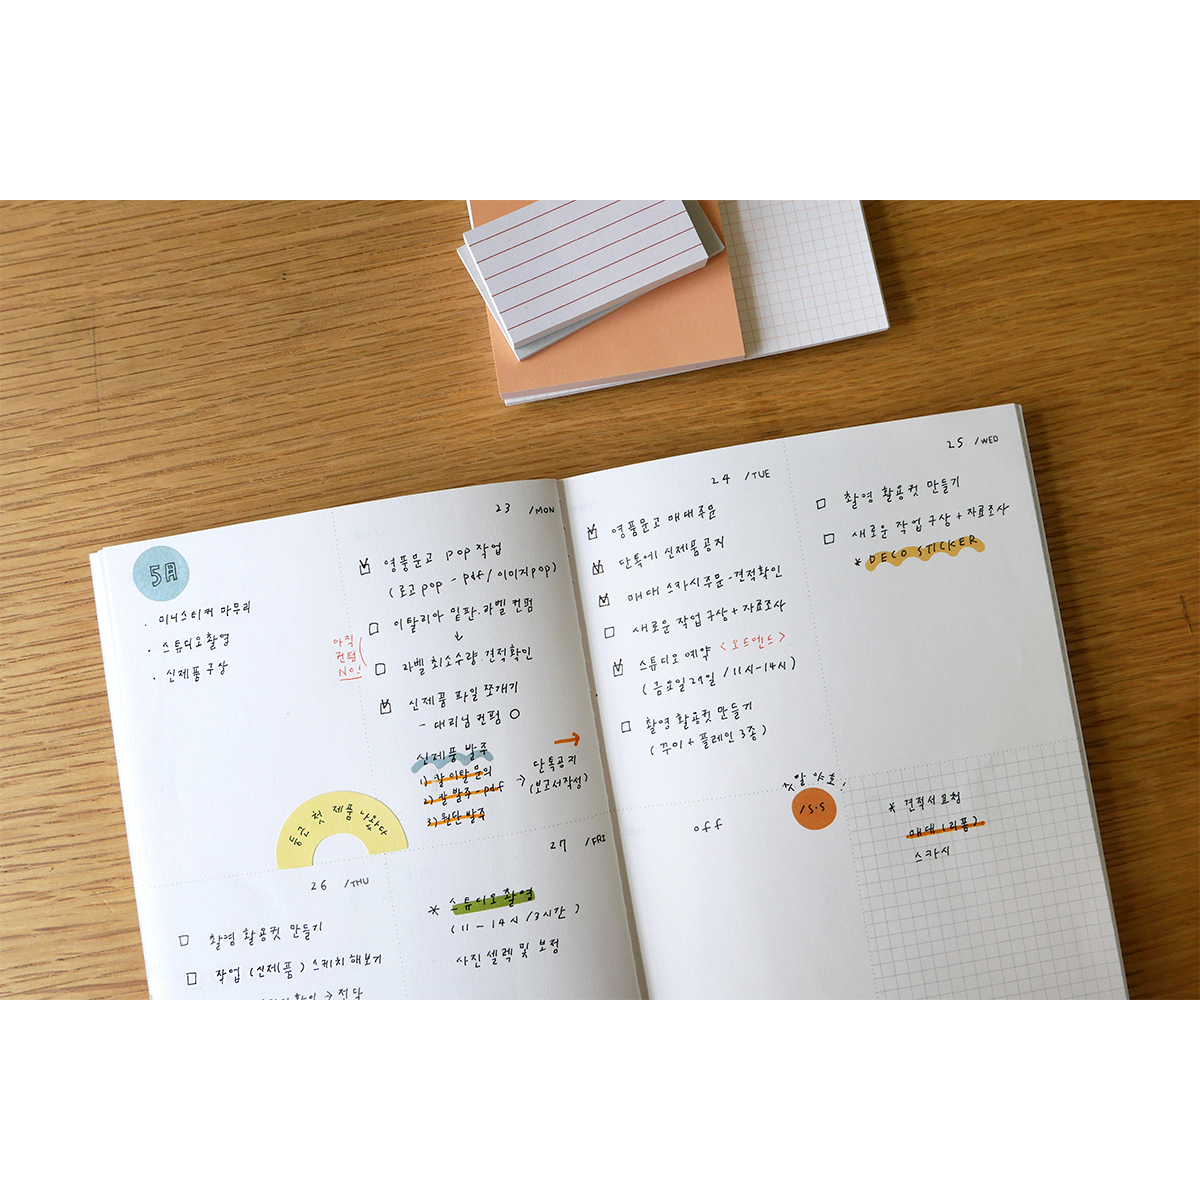 5月
· 미니스티커 마무리
· 스튜디오 촬영
· 신제품 구상
첫 제품 나왔다
23 /MON
영풍문고 pop 작업
(로고 pop - pdf / 이미지 pop)
이탈리아 밑판.라벨 컨펌
↓
아직
컨텀
No!
라벨 최소수량.견적확인
신제품 파일 쪼개기
- 대리님 컨펌 ○
신제품 발주
1) 칼 이탈 문의
2) 칼 발주 - pdf
3) 원단 발주
→ 단톡공지
(보고서작성)
24 /TUE
영풍문고 매대주문
단톡에 신제품공지
매대 스카시주문 - 견적확인
새로운 작업 구상 + 자료조사
스튜디오 예약 <오드엔드>
(금요일 27일 / 11시-14시)
촬영 활용컷 만들기
(꾸미 + 플레인 3종)
25 /WED
촬영 활용컷 만들기
새로운 작업 구상 + 자료조사
* DECO STICKER
26 /THU
촬영 활용컷 만들기
작업 (신제품) 스케치 해보기
확인 → 전달
27 /FRI
* 스튜디오 촬영
(11 - 14시 / 3시간)
사진 셀렉 및 보정
off
15.5
* 견적서 요청
매대 (리폼)
스카시